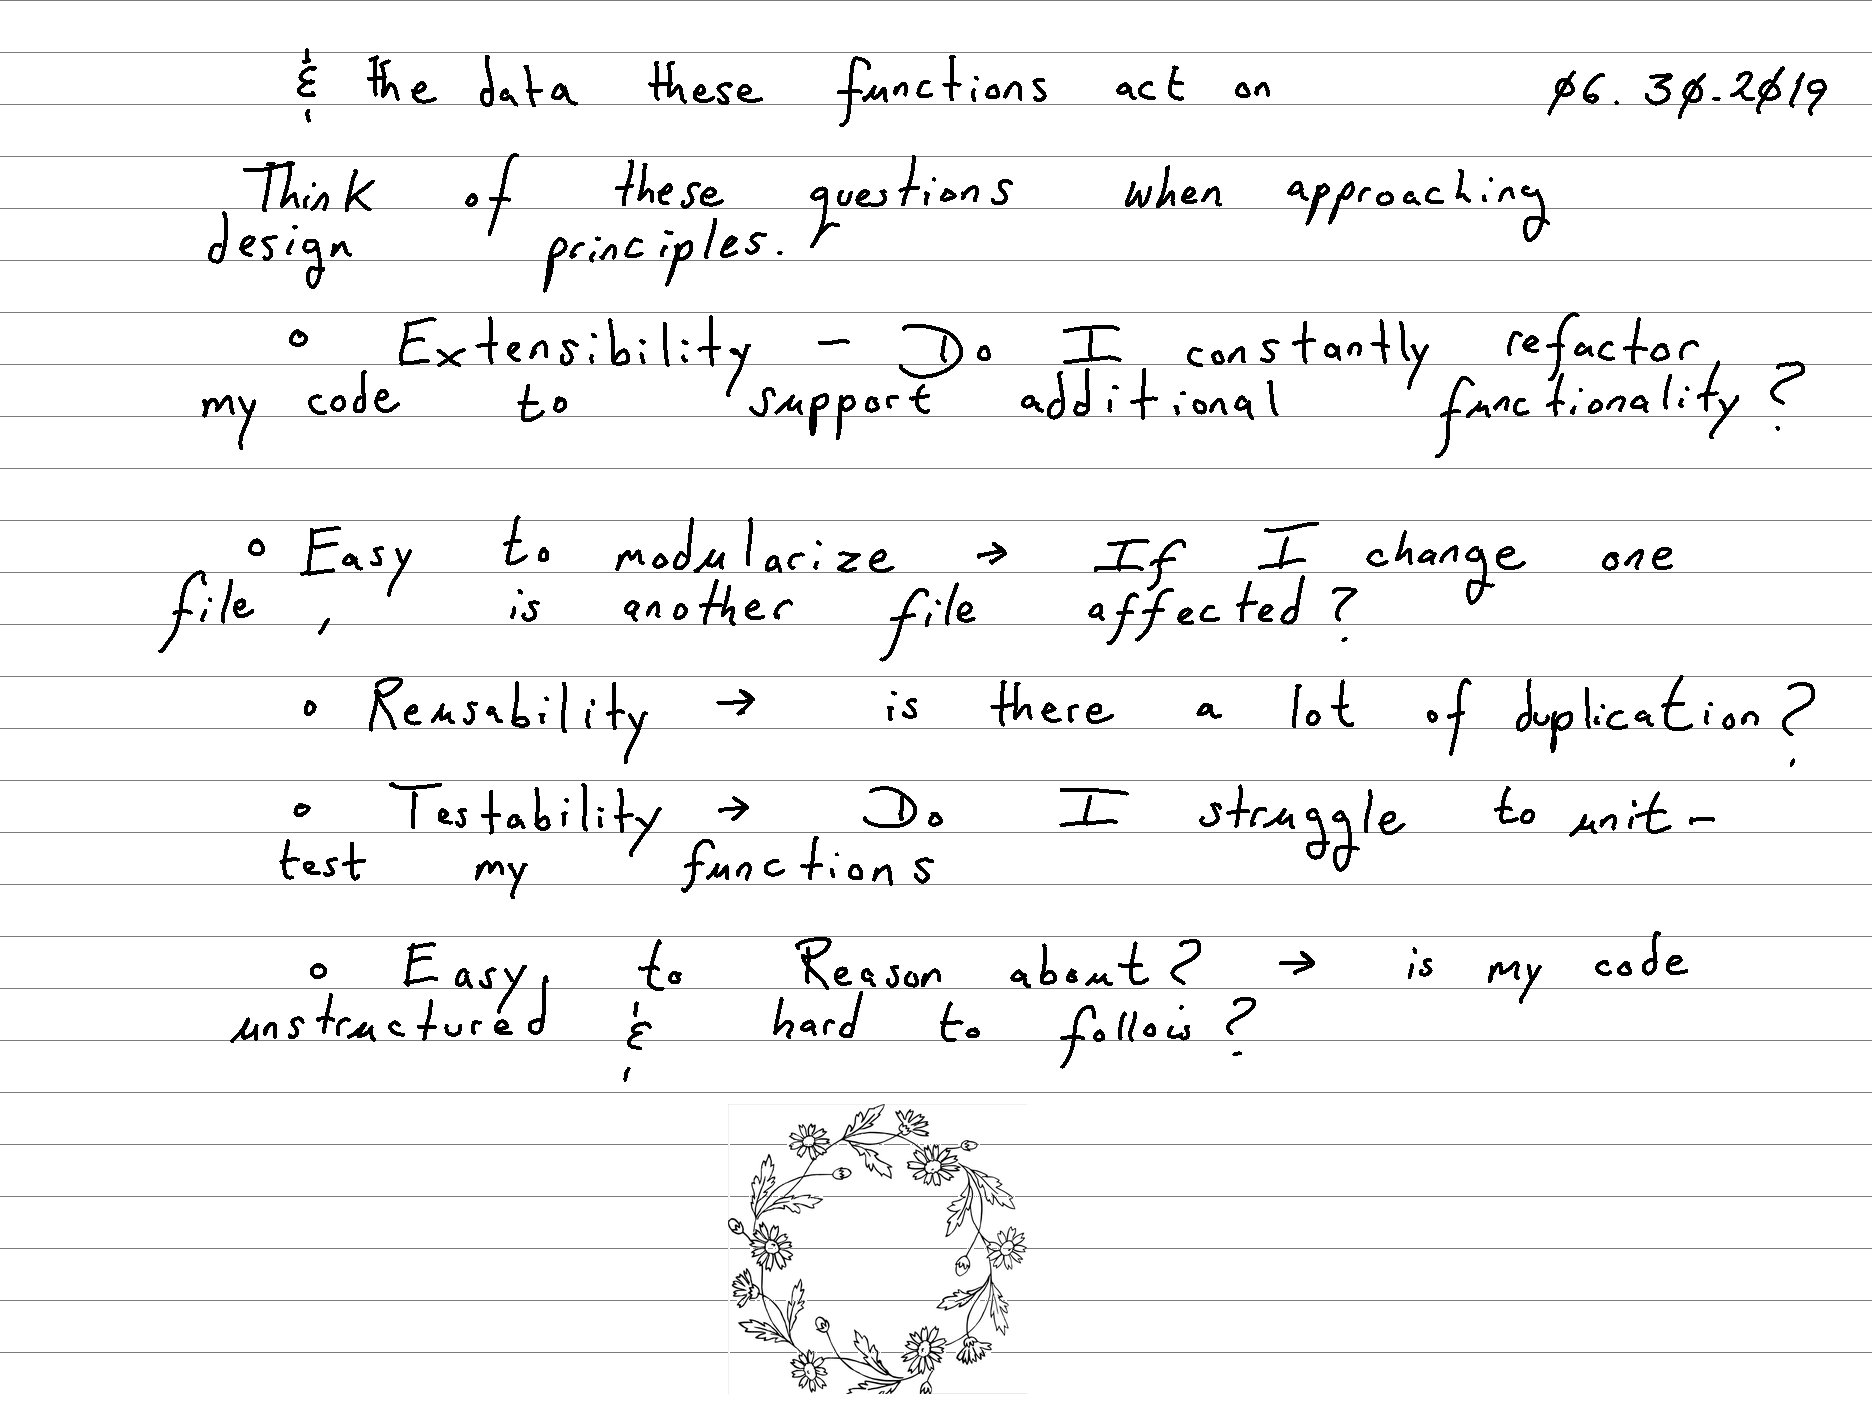 & the data these functions act on 06.30.2019
Think of these questions when approaching
design principles.
◦ Extensibility - Do I constantly refactor
my code to support additional functionality?
◦ Easy to modularize → If I change one
file, is another file affected?
◦ Reusability → is there a lot of duplication?
◦ Testability → Do I struggle to unit-
test my functions
◦ Easy to Reason about? → is my code
unstructured & hard to follow?